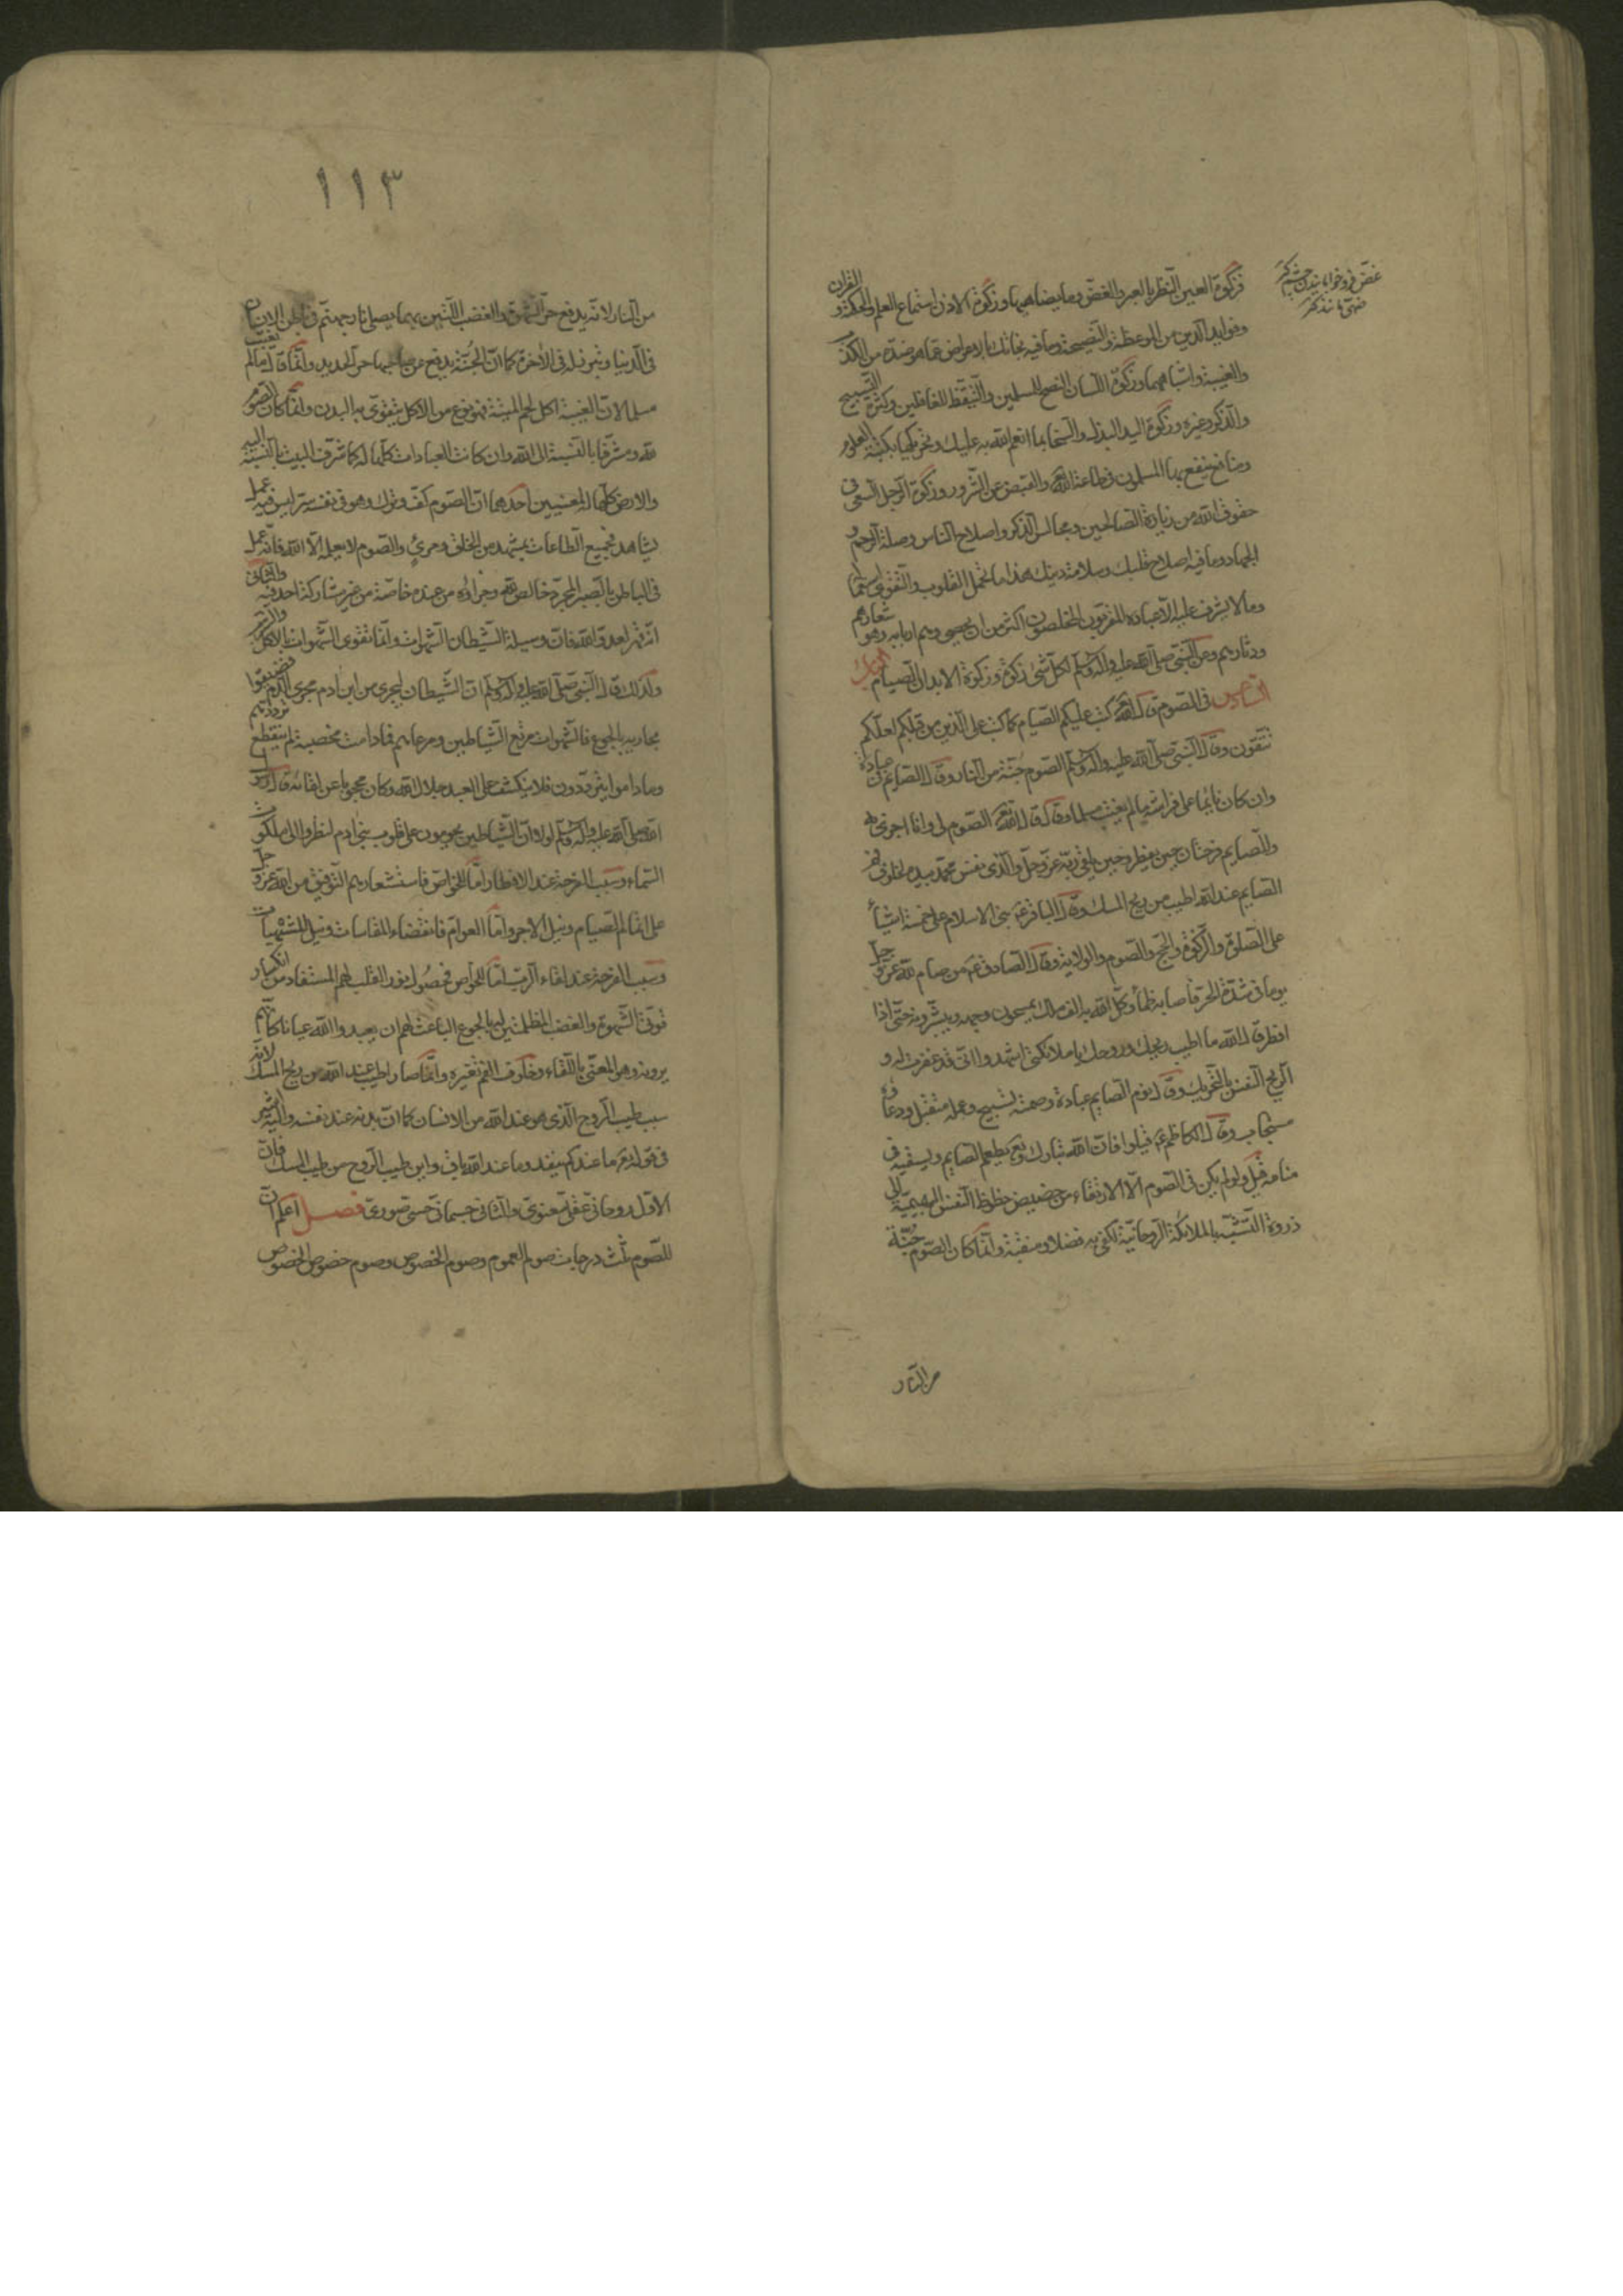 فزكوة العين النظر بالعبر والغض وما يضاهيها وزكوة الاذن استماع العلم والحكمة والقران
وفوايد الدين من الموعظة والنصيحة وما فيه نجاتك بالاعراض عما هو ضده من الكذب
والغيبة واشباههما وزكوة اللسان النصح للمسلمين والتيقظ للغافلين وكثرة التسبيح
والذكر وغيره وزكوة اليد البذل والسخا بما انعم الله به عليك وتحريكها بكتبة العلوم
ومنافع ينتفع بها المسلمون في طاعة الله تع والقبض عن الشرور وزكوة الرجل السعي في
حقوق الله من زيارة الصالحين ومجالس الذكر واصلاح الناس وصلة الرحم و
الجهاد وما فيه اصلاح قلبك وسلامة دينك هذا ما تحمل القلوب والنفوس استعماله
وما لا يشرف عليه الا عباده المقربون المخلصون اكثر من ان يحصى وهم اربابه وهو شعارهم
ودثارهم وعن النبي صلى الله عليه واله وسلم لكل شئ زكوة وزكوة الابدان الصيام الباب
السادس في الصوم قال الله تع كتب عليكم الصيام كما كتب على الذين من قبلكم لعلكم
تتقون وقال النبي صلى الله عليه واله وسلم الصوم جنة من النار وقال الصايم في عبادة
وان كان نايما على فراشه ما لم يغتب مسلما وقال قال الله تع الصوم لي وانا اجزي به
وللصايم فرحتان حين يفطر وحين يلقى ربه عز وجل والذي نفس محمد بيده لخلوف فم
الصايم عند الله اطيب من ريح المسك وقال الباقر ع بنى الاسلام على خمسة اشياء
على الصلوة والزكوة والحج والصوم والولاية وقال الصادق ع من صام لله عز وجل
يوما في شدة الحر فاصابه ظمأ وكل الله به الف ملك يمسحون وجهه ويبشرونه حتى اذا
افطر قال الله ما اطيب ريحك وروحك يا ملائكتي اشهدوا اني قد غفرت له و
الريح النفس بالتحريك وقال نوم الصايم عبادة وصمته تسبيح وعمله متقبل ودعاؤه
مستجاب وقال الكاظم ع قيلوا فان الله تبارك وتع يطعم الصايم ويسقيه في
منامه قيل ولو لم يكن في الصوم الا الارتقاء من حضيض حظوظ النفس البهيمية الى
ذروة التشبه بالملائكة الروحانية لكفى به فضلا ومنقبة وانما كان الصوم جنة
من النار
١١٣
من النار لانه يدفع حر الشهوة والغضب اللتين بهما يصلى نار جهنم في باطن الانسان
في الدنيا وتبرز له في الاخرة كما ان الجنة يدفع عن صاحبها حر الحديد وانما قال ما لم يغتب
مسلما لان الغيبة اكل لحم الميتة فهو نوع من الاكل يتقوى به البدن وانما كان الصوم
لله ومشرفا بالنسبة الى الله وان كانت العبادات كلها له كما شرف البيت بالنسبة اليه
والارض كلها له لمعنيين احدهما ان الصوم كف وترك وهو في نفسه سر ليس فيه عمل
يشاهد فجميع الطاعات بمشهد من الخلق ومرئ والصوم لا يعلمه الا الله فانه عمل
في الباطن بالصبر المجرد خالص لله وجزاؤه من عنده خاصة من غير مشاركة احد فيه والثاني
انه قهر لعدو الله فان وسيلة الشيطان الشهوات وانما تقوى الشهوات بالاكل والشرب
ولذلك قال النبي صلى الله عليه واله وسلم ان الشيطان ليجري من ابن ادم مجرى الدم فضيقوا
مجاريه بالجوع فالشهوات مرتع الشياطين ومرعاهم فما دامت مخصبة لم ينقطع ترددهم
وما داموا يترددون فلا ينكشف على العبد جلال الله وكان محجوبا عن لقائه قال رسول
الله صلى الله عليه واله وسلم لولا ان الشياطين يحومون على قلوب بني ادم لنظروا الى ملكوت
السماء وسبب الفرحة عند الافطار اما للخواص فاستشعارهم التوفيق من الله عز وجل
على اتمام الصيام ونيل الاجر واما العوام فانقضاء المقاسات ونيل المشتهيات
وسبب الفرحة عند لقاء الرب اما للخواص فحصول نور القلب لهم المستفاد من انكسار
قوتي الشهوة والغضب المظلمتين لهم بالجوع الباعث لهم ان يعبدوا الله عيانا كانهم
يرونه وهو المعنى باللقاء وخلوف الفم تغيره وانما صار اطيب عند الله من ريح المسك لانه
سبب طيب الروح الذي هو عند الله من الانسان كما ان بدنه عند نفسه واليه اشير
في قوله تع ما عندكم ينفد وما عند الله باق واين طيب الروح من طيب المسك فان
الاول روحاني عقلي معنوي والثاني جسماني حسي صوري فصل اعلم ان
للصوم ثلث درجات صوم العموم وصوم الخصوص وصوم خصوص الخصوص